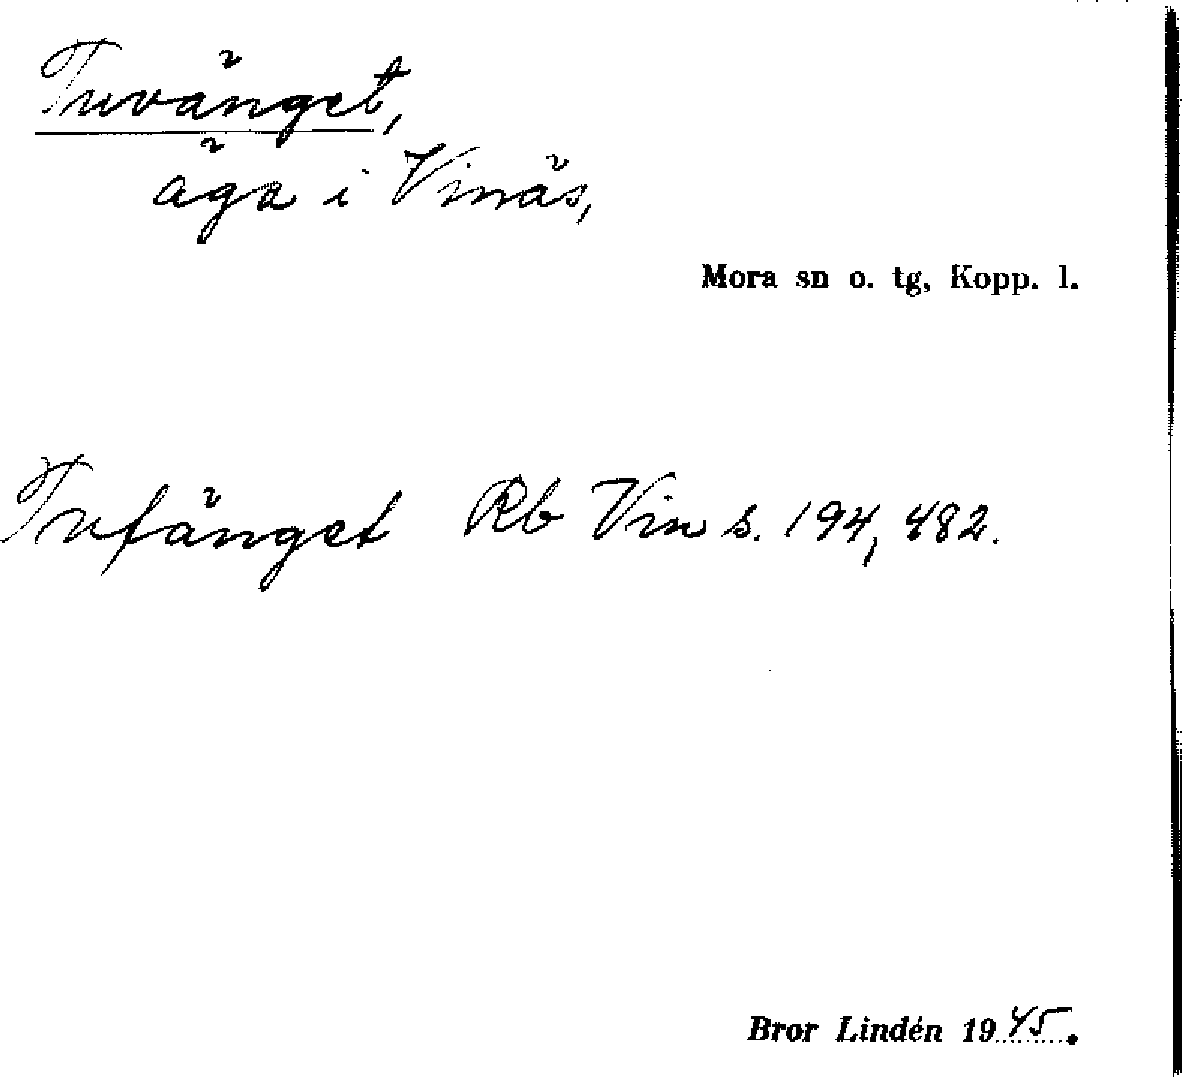 Tuvänget,
äga i Vinäs,
Mora sn o. tg, Kopp. l.
Tufänget Rb Vin s. 194, 482.
Bror Lindén 1945.